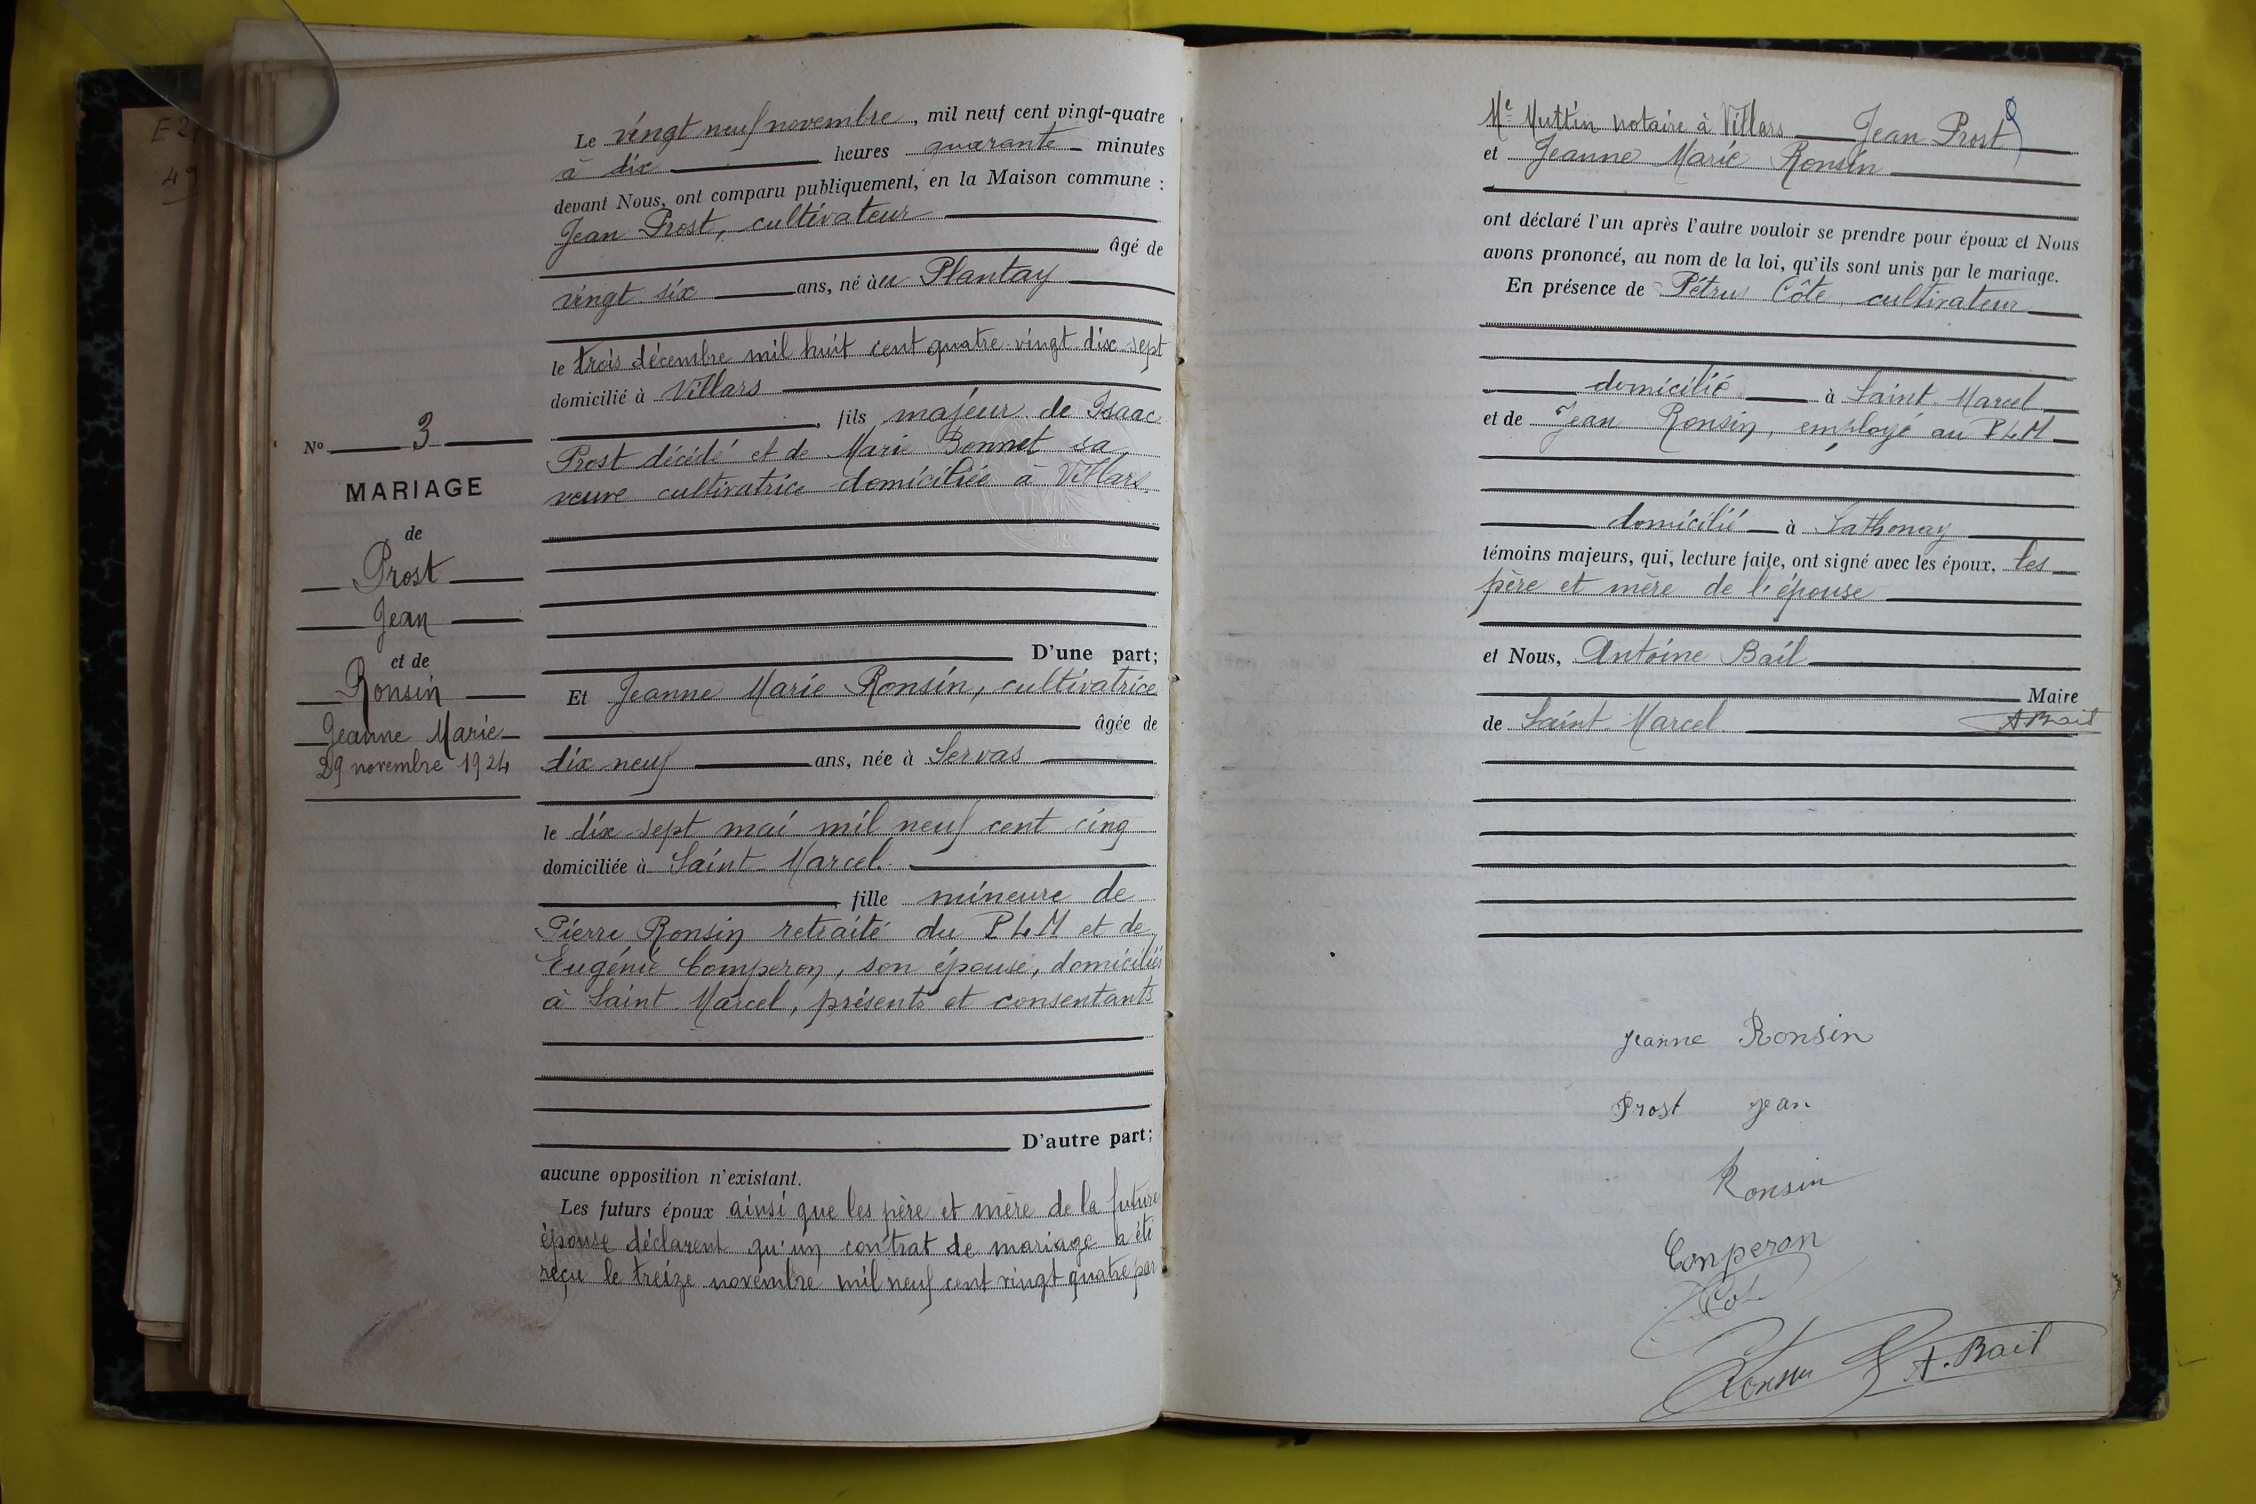 E 2
49
N° 3
MARIAGE
de
Prost
Jean
et de
Ronsin
Jeanne Marie
29 novembre 1924
Le vingt neuf novembre, mil neuf cent vingt-quatre
à dix heures quarante minutes
devant Nous, ont comparu publiquement, en la Maison commune :
Jean Prost, cultivateur
âgé de
vingt six ans, né àu Plantay
le trois décembre mil huit cent quatre-vingt-dix-sept
domicilié à Villars
, fils majeur de Isaac
Prost décédé et de Marie Bonnet sa
veuve cultivatrice domiciliée à Villars
D'une part;
Et Jeanne Marie Ronsin, cultivatrice
âgée de
dix neuf ans, née à Servas
le dix-sept mai mil neuf cent cinq
domiciliée à Saint-Marcel
, fille mineure de
Pierre Ronsin retraité du P L M et de
Eugénie Comperon, son épouse, domiciliés
à Saint Marcel, présents et consentants
D'autre part;
aucune opposition n'existant.
Les futurs époux ainsi que les père et mère de la future
épouse déclarent qu'un contrat de mariage a été
reçu le treize novembre mil neuf cent vingt quatre par
Me Muttin notaire à Villars Jean Prost
et Jeanne Marie Ronsin
ont déclaré l'un après l'autre vouloir se prendre pour époux et Nous
avons prononcé, au nom de la loi, qu'ils sont unis par le mariage.
En présence de Pétrus Côte, cultivateur
domicilié à Saint-Marcel
et de Jean Ronsin, employé au P L M
domicilié à Sathonay
témoins majeurs, qui, lecture faite, ont signé avec les époux, les
père et mère de l'épouse
et Nous, Antoine Bail
Maire
de Saint-Marcel A Bail
Jeanne Ronsin
Prost Jean
Ronsin
Conperon
Cote
Ronsin A. Bail